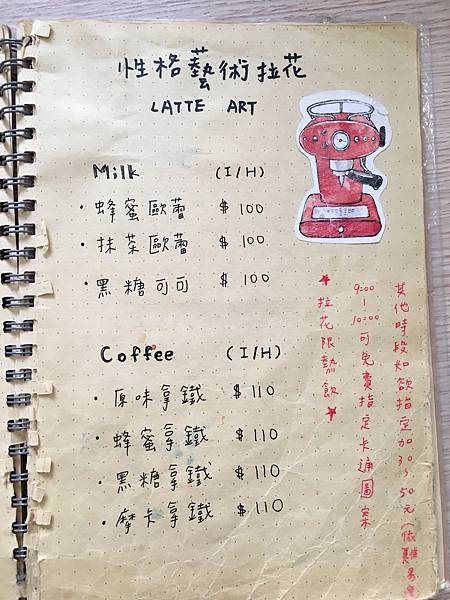 性格藝術拉花
LATTE ART
Milk (I/H)
・蜂蜜歐蕾 $ 100
・抹茶歐蕾 $ 100
・黑糖可可 $ 100
Coffee (I/H)
・原味拿鐵 $ 110
・蜂蜜拿鐵 $ 110
・黑糖拿鐵 $ 110
・摩卡拿鐵 $ 110
★拉花限熱飲★
9:00-10:00可免費指定卡通圖案
其他時段如欲指定加30~50元(依難易度